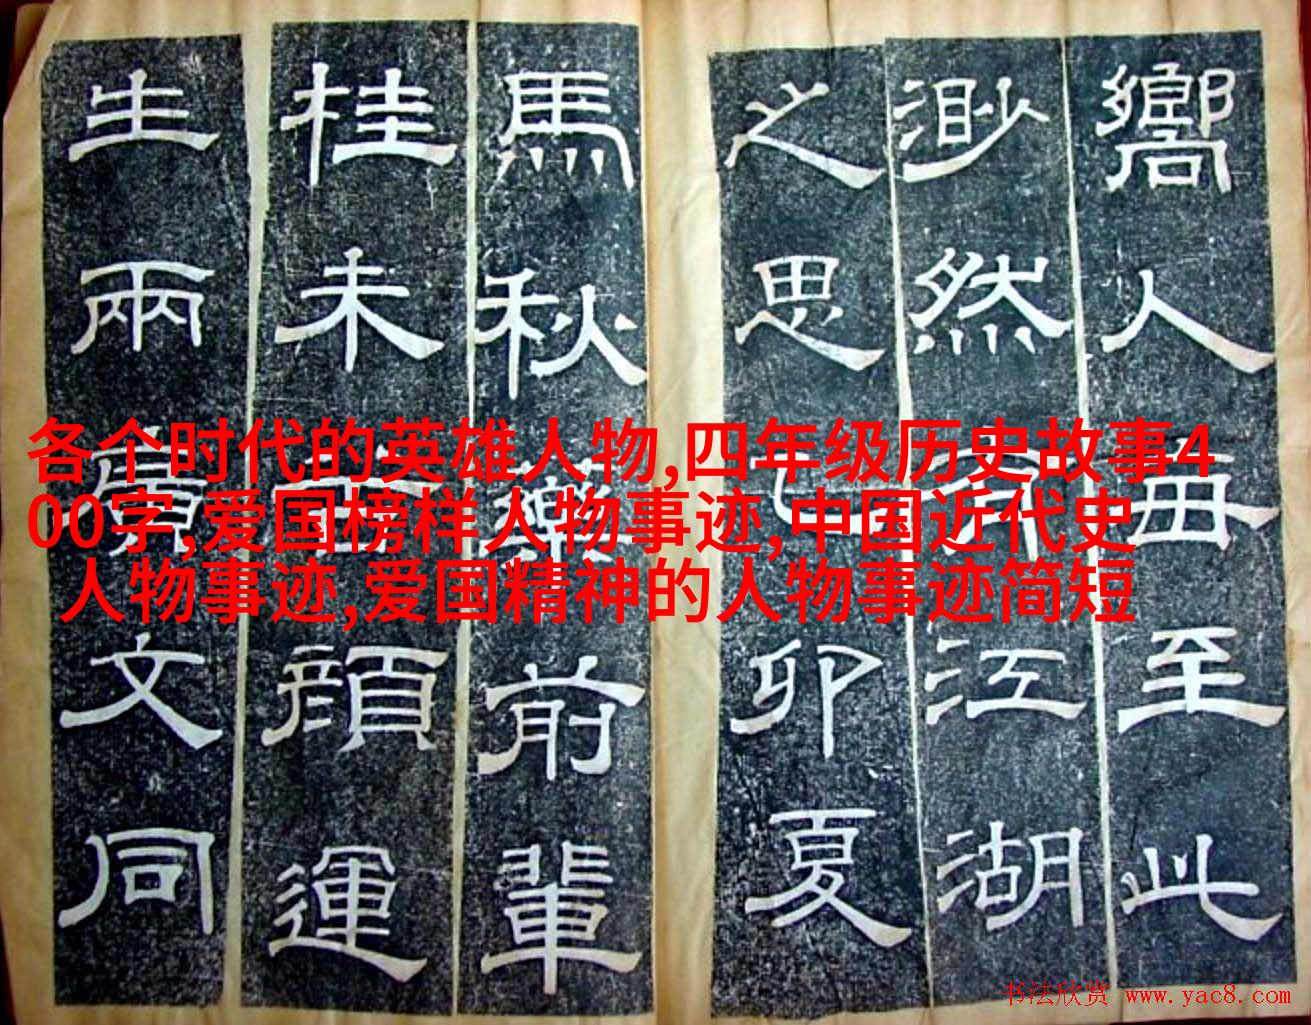 嚮人每至此
渺然江湖
之思卯夏
馬秋藥前輩
桂未顏運
生兩廣文同
各个时代的英雄人物,四年级历史故事4
00字,爱国榜样人物事迹,中国近代史
人物事迹,爱国精神的人物事迹简短
书法欣赏 www.yac8.com